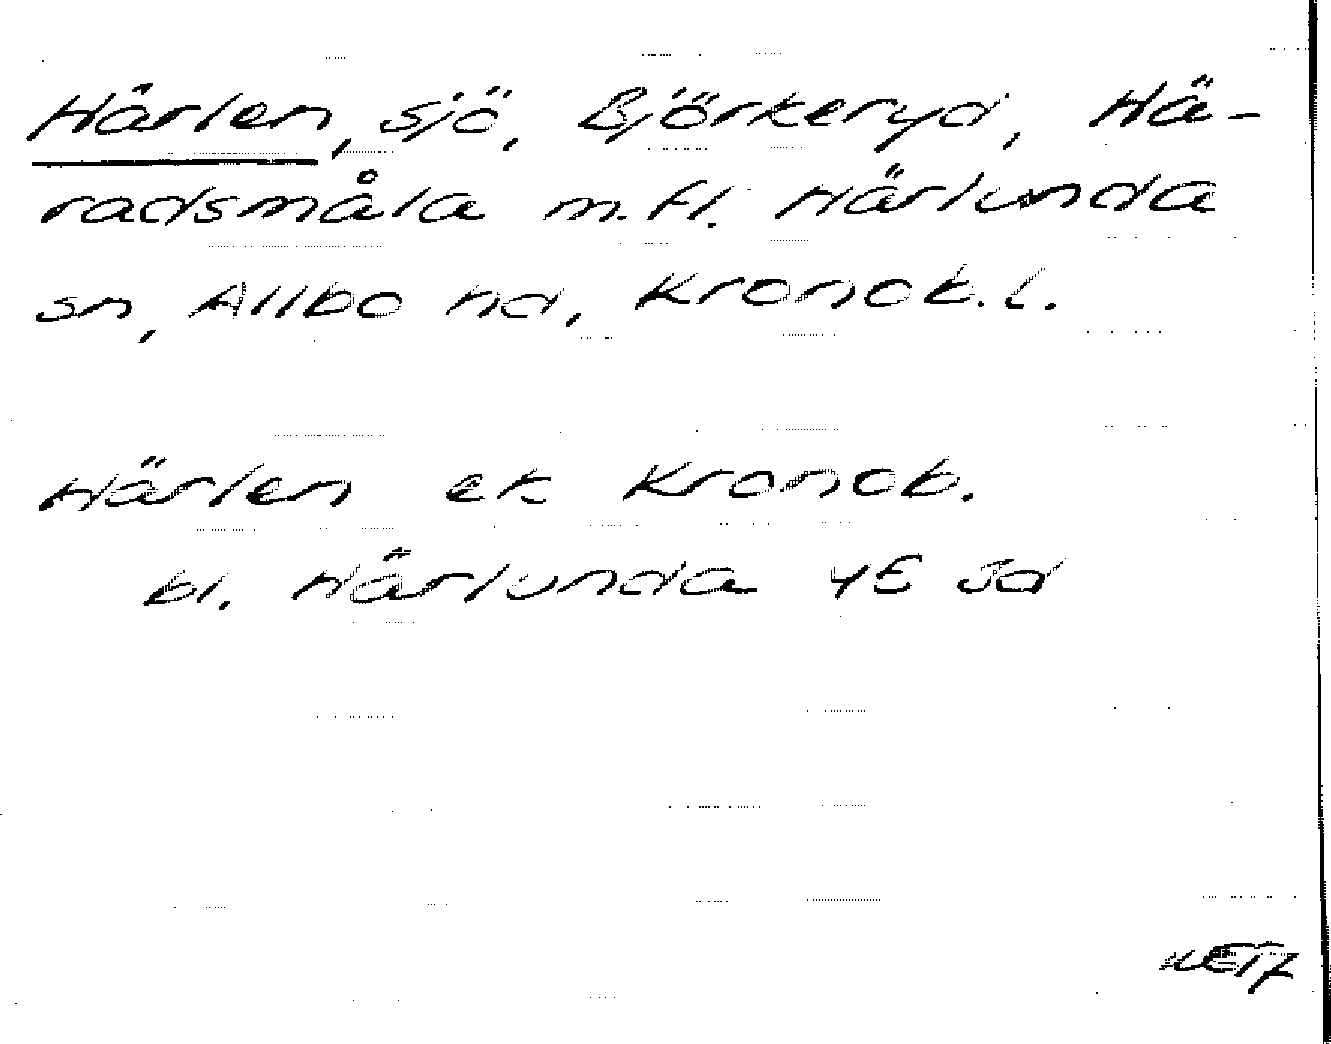 Härlen, sjö, Björkeryd, Hä-
radsmåla m.fl. Härlunda
sn, Allbo hd, Kronob.l.
Härlen ek Kronob.
bl. Härlunda 4E 3d